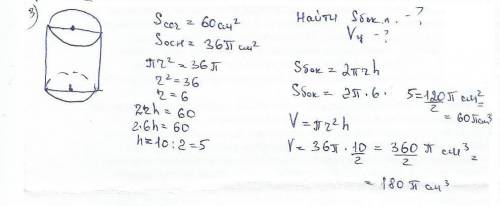 3)
Sсеч = 60 см²
Sосн = 36π см²
πr² = 36π
r² = 36
r = 6
2rh = 60
2·6h = 60
h = 10 : 2 = 5
Найти Sбок.п. - ?
Vц - ?
Sбок = 2πrh
Sбок = 2π · 6 · 5 = 120π/2 см² =
= 60π см³
V = πr²h
V = 36π · 10/2 = 360/2 π см³ =
= 180π см³